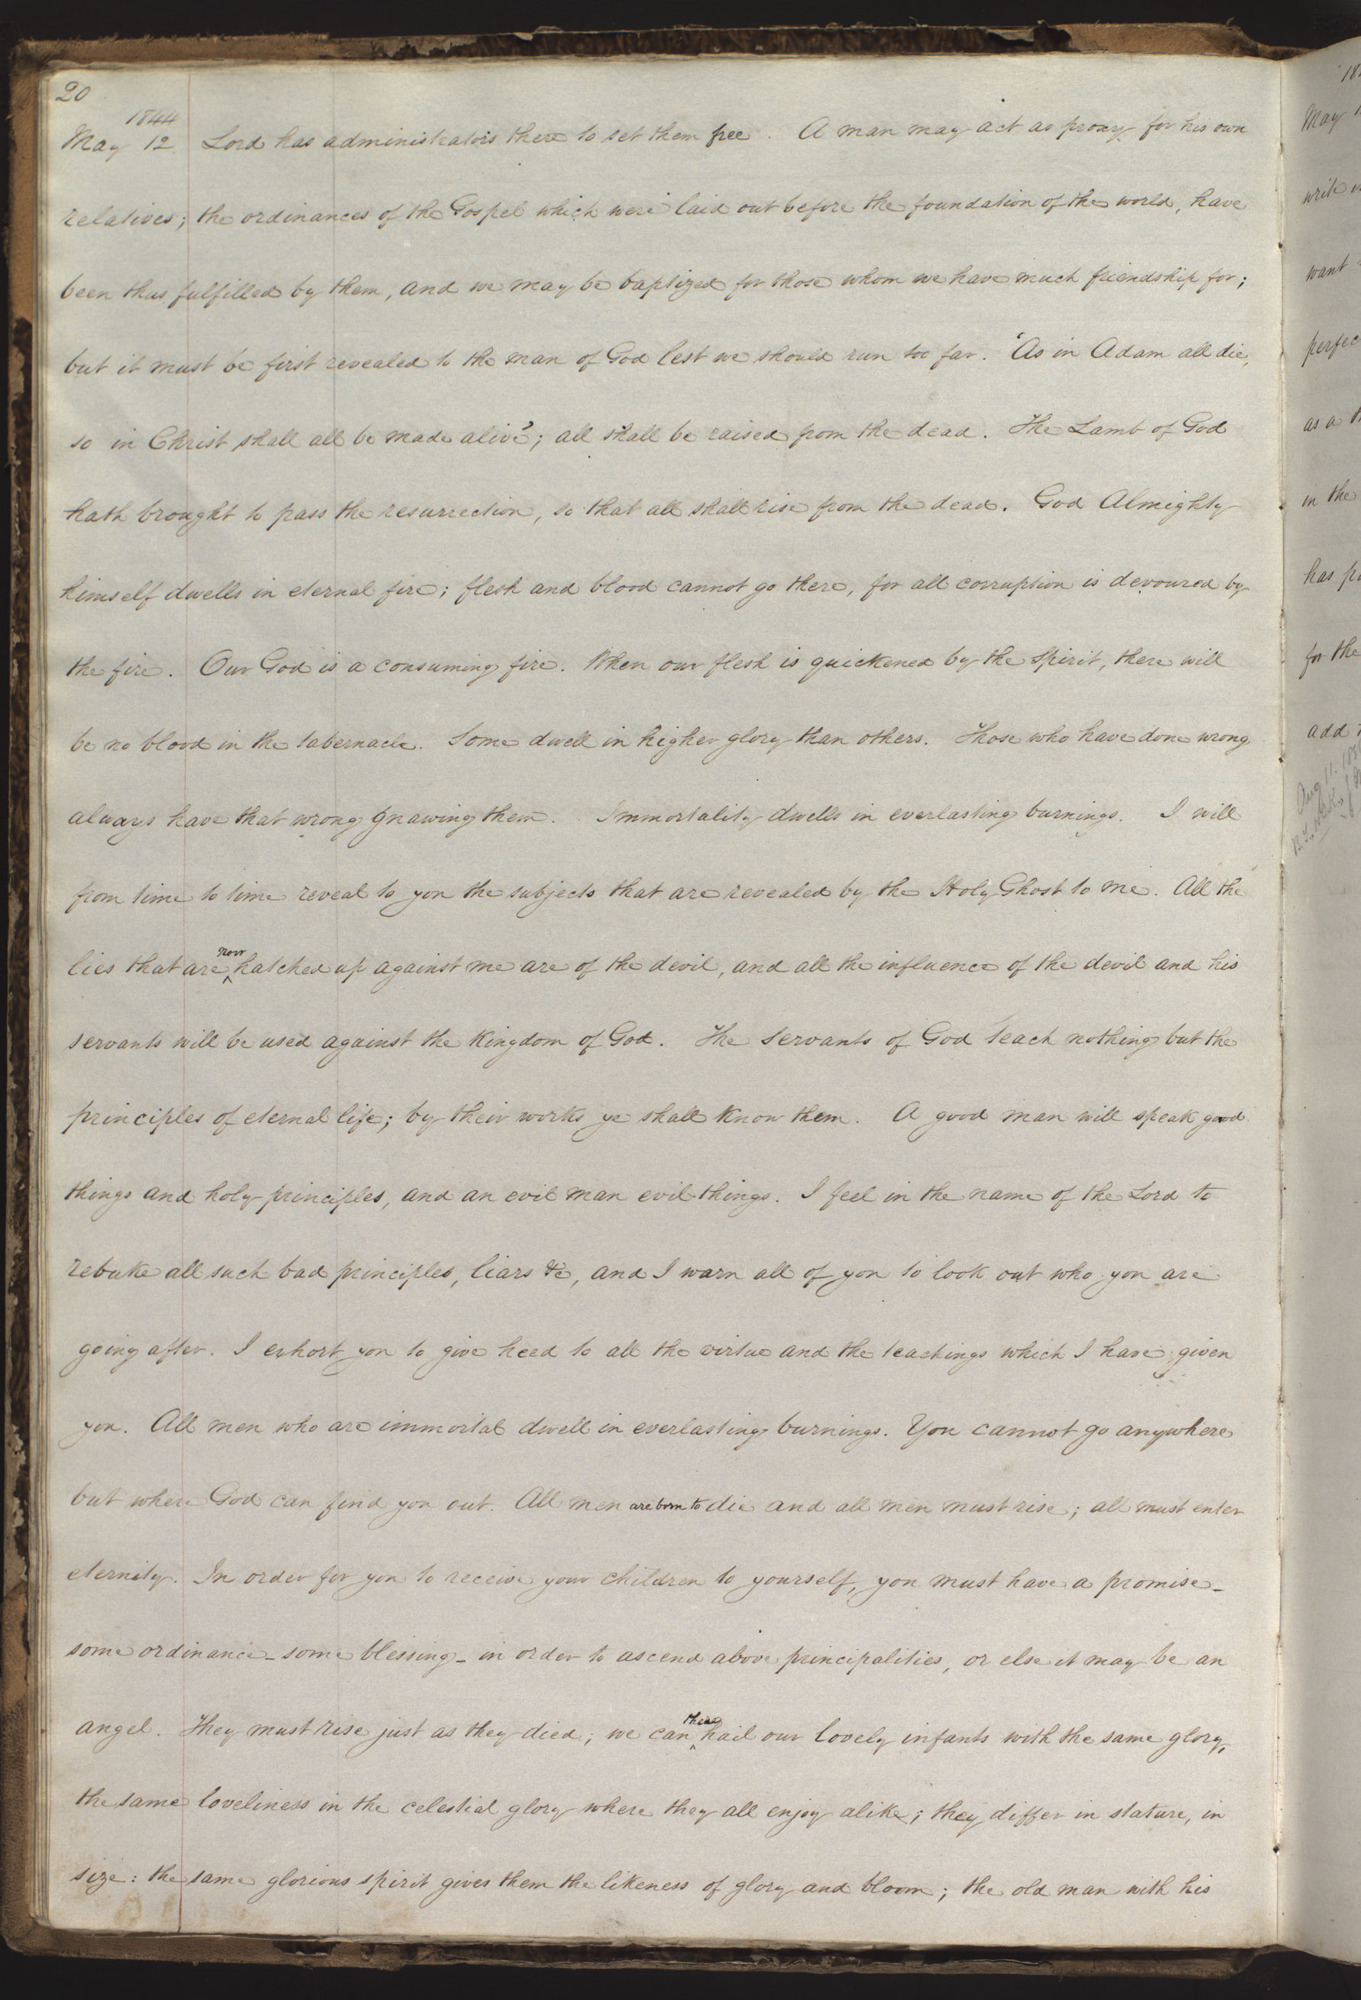 20
1844
May 12 Lord has administrators there to set them free. A man may act as proxy for his own
relatives; the ordinances of the Gospel which were laid out before the foundation of the world, have
been thus fulfilled by them, and we may be baptized for those whom we have much friendship for;
but it must be first revealed to the man of God lest we should run too far. "As in Adam all die,
so in Christ shall all be made alive"; all shall be raised from the dead. The Lamb of God
hath brought to pass the resurrection, so that all shall rise from the dead. God Almighty
himself dwells in eternal fire; flesh and blood cannot go there, for all corruption is devoured by
the fire. Our God is a consuming fire. When our flesh is quickened by the Spirit, there will
be no blood in the tabernacle. Some dwell in higher glory than others. Those who have done wrong
always have that wrong gnawing them. Immortality dwells in everlasting burnings. I will
from time to time reveal to you the subjects that are revealed by the Holy Ghost to me. All the
lies that are now hatched up against me are of the devil, and all the influence of the devil and his
servants will be used against the kingdom of God. The servants of God teach nothing but the
principles of eternal life; by their works ye shall know them. A good man will speak good
things and holy principles, and an evil man evil things. I feel in the name of the Lord to
rebuke all such bad principles, liars &c, and I warn all of you to look out who you are
going after. I exhort you to give heed to all the virtue and the teachings which I have given
you. All men who are immortal dwell in everlasting burnings. You cannot go anywhere
but where God can find you out. All men are born to die and all men must rise; all must enter
eternity. In order for you to receive your children to yourself, you must have a promise—
some ordinance— some blessing— in order to ascend above principalities, or else it may be an
angel. They must rise just as they died; we can there hail our lovely infants with the same glory,
the same loveliness in the celestial glory where they all enjoy alike; they differ in stature, in
size: the same glorious spirit gives them the likeness of glory and bloom; the old man with his
May
want
as a
in the
has
for the
add
Aug 11.